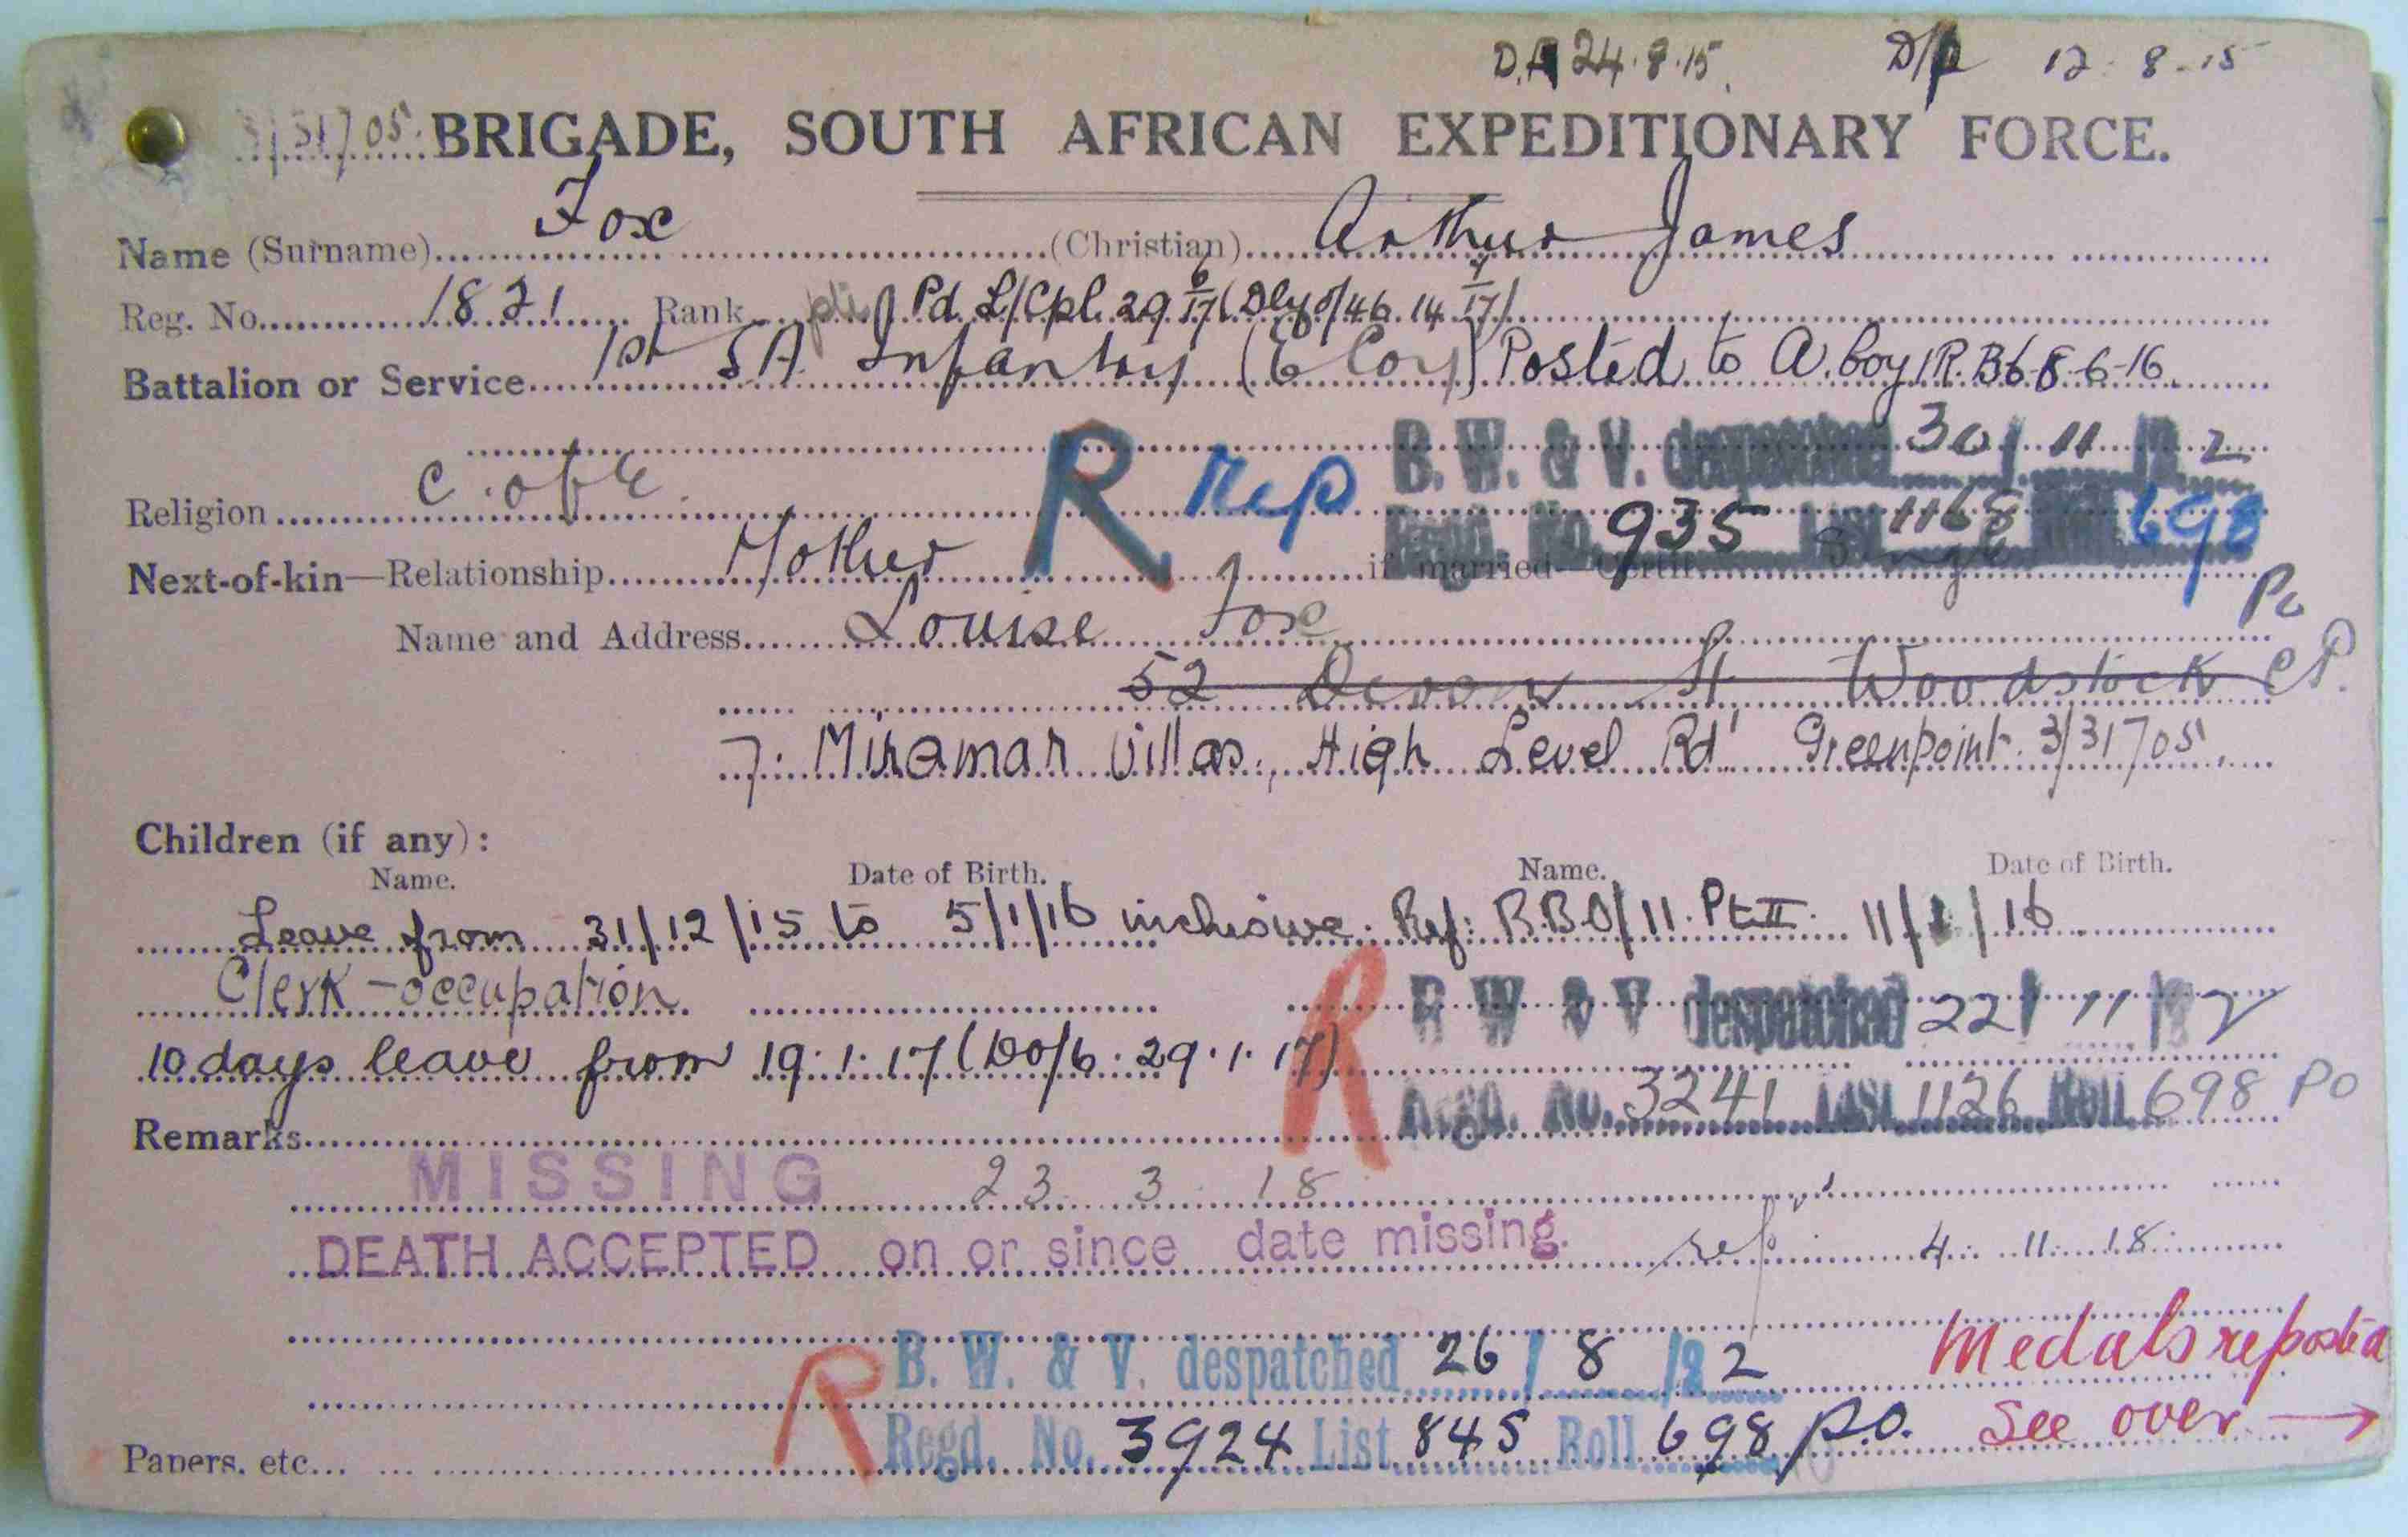 D.A 24.8.15. D/P 12.8.15
3/31705. BRIGADE, SOUTH AFRICAN EXPEDITIONARY FORCE.
Name (Surname) Fox (Christian) Arthur James
Reg. No. 1821 Rank Pd. L/Cpl. 29 6/17 (DLy O/46. 14 7/17)
Battalion or Service 1st SA Infantry (E Coy) Posted to A. Coy /R.B68-6-16.
B. W. & V. despatched 30/11/22
Religion C. of E. R Rep
Regd. No. 935 List 1168 Roll 698
Next-of-kin—Relationship Mother if married—Certif. Single
Po
Name and Address Louise Fox
52 Devon St Woodstock C P.
7. Miramar Villas, High Level Rd Greenpoint. 3/31705.
Children (if any):
Name. Date of Birth. Name. Date of Birth.
Leave from 31/12/15 to 5/1/16 inclusive. Ref: R.B.O/11. Pt II. 11/1/16
Clerk - occupation R B W & V despatched 22/11/22
10 days leave from 19.1.17 (DO/6. 29.1.17)
Regd. No. 3241 List 1126 Roll 698 PO
Remarks
MISSING 23 3 18
DEATH ACCEPTED on or since date missing. 4.11.18
B. W. & V. despatched 26/8/22 Medals reposted
R Regd. No. 3924 List 845 Roll 698 P.O. See over →
Papers, etc.